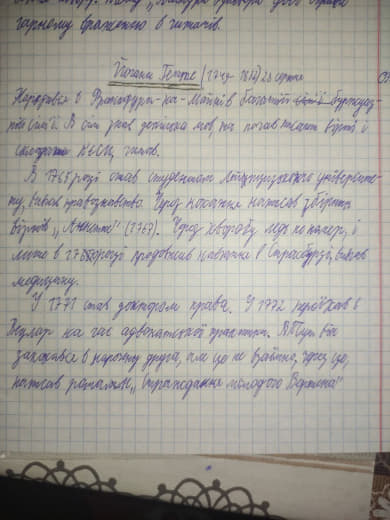 гарному враженню в читачів.
Йоганн Гете (1749 - 1832) 28 серпня
Народився в Франкфурті-на-Майні в багатій бюргер
ській сім'ї. В сім знав декілька мов, почав писати вірші і
п'єси,
В 1765 році став студентом Лейпцизького університе-
ту, вивчав правознавство. Через кохання написав збірку
віршів „Аннетте" (1767). Через хворобу ледь не помер, і
лише в 1770 році продовжив навчання в Страсбурзі, вивчав
медицину.
У 1771 став доктором права. У 1772 переїхав в
Вецлар на час адвокатської практики. Тут він
закохався в наречену друга, але це не взаємно, через це,
написав роман „Страждання молодого Вертера"